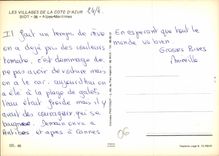 LES VILLAGES DE LA COTE D'AZUR
BIOT - 06 - Alpes-Maritimes
24/4
Il fait un temps de rêve
on a déjà pris des couleurs
tomate, c'est dommage de
ne pas avoir de voiture mais
on a le car. aujourd'hui on
a été à la plage de galets,
l'eau était froide mais il y
avait des courageux qui se
baignaient. Demain on va à
Antibes et après à Cannes
En espérant que tout le
monde va bien
Grosses Bises
06